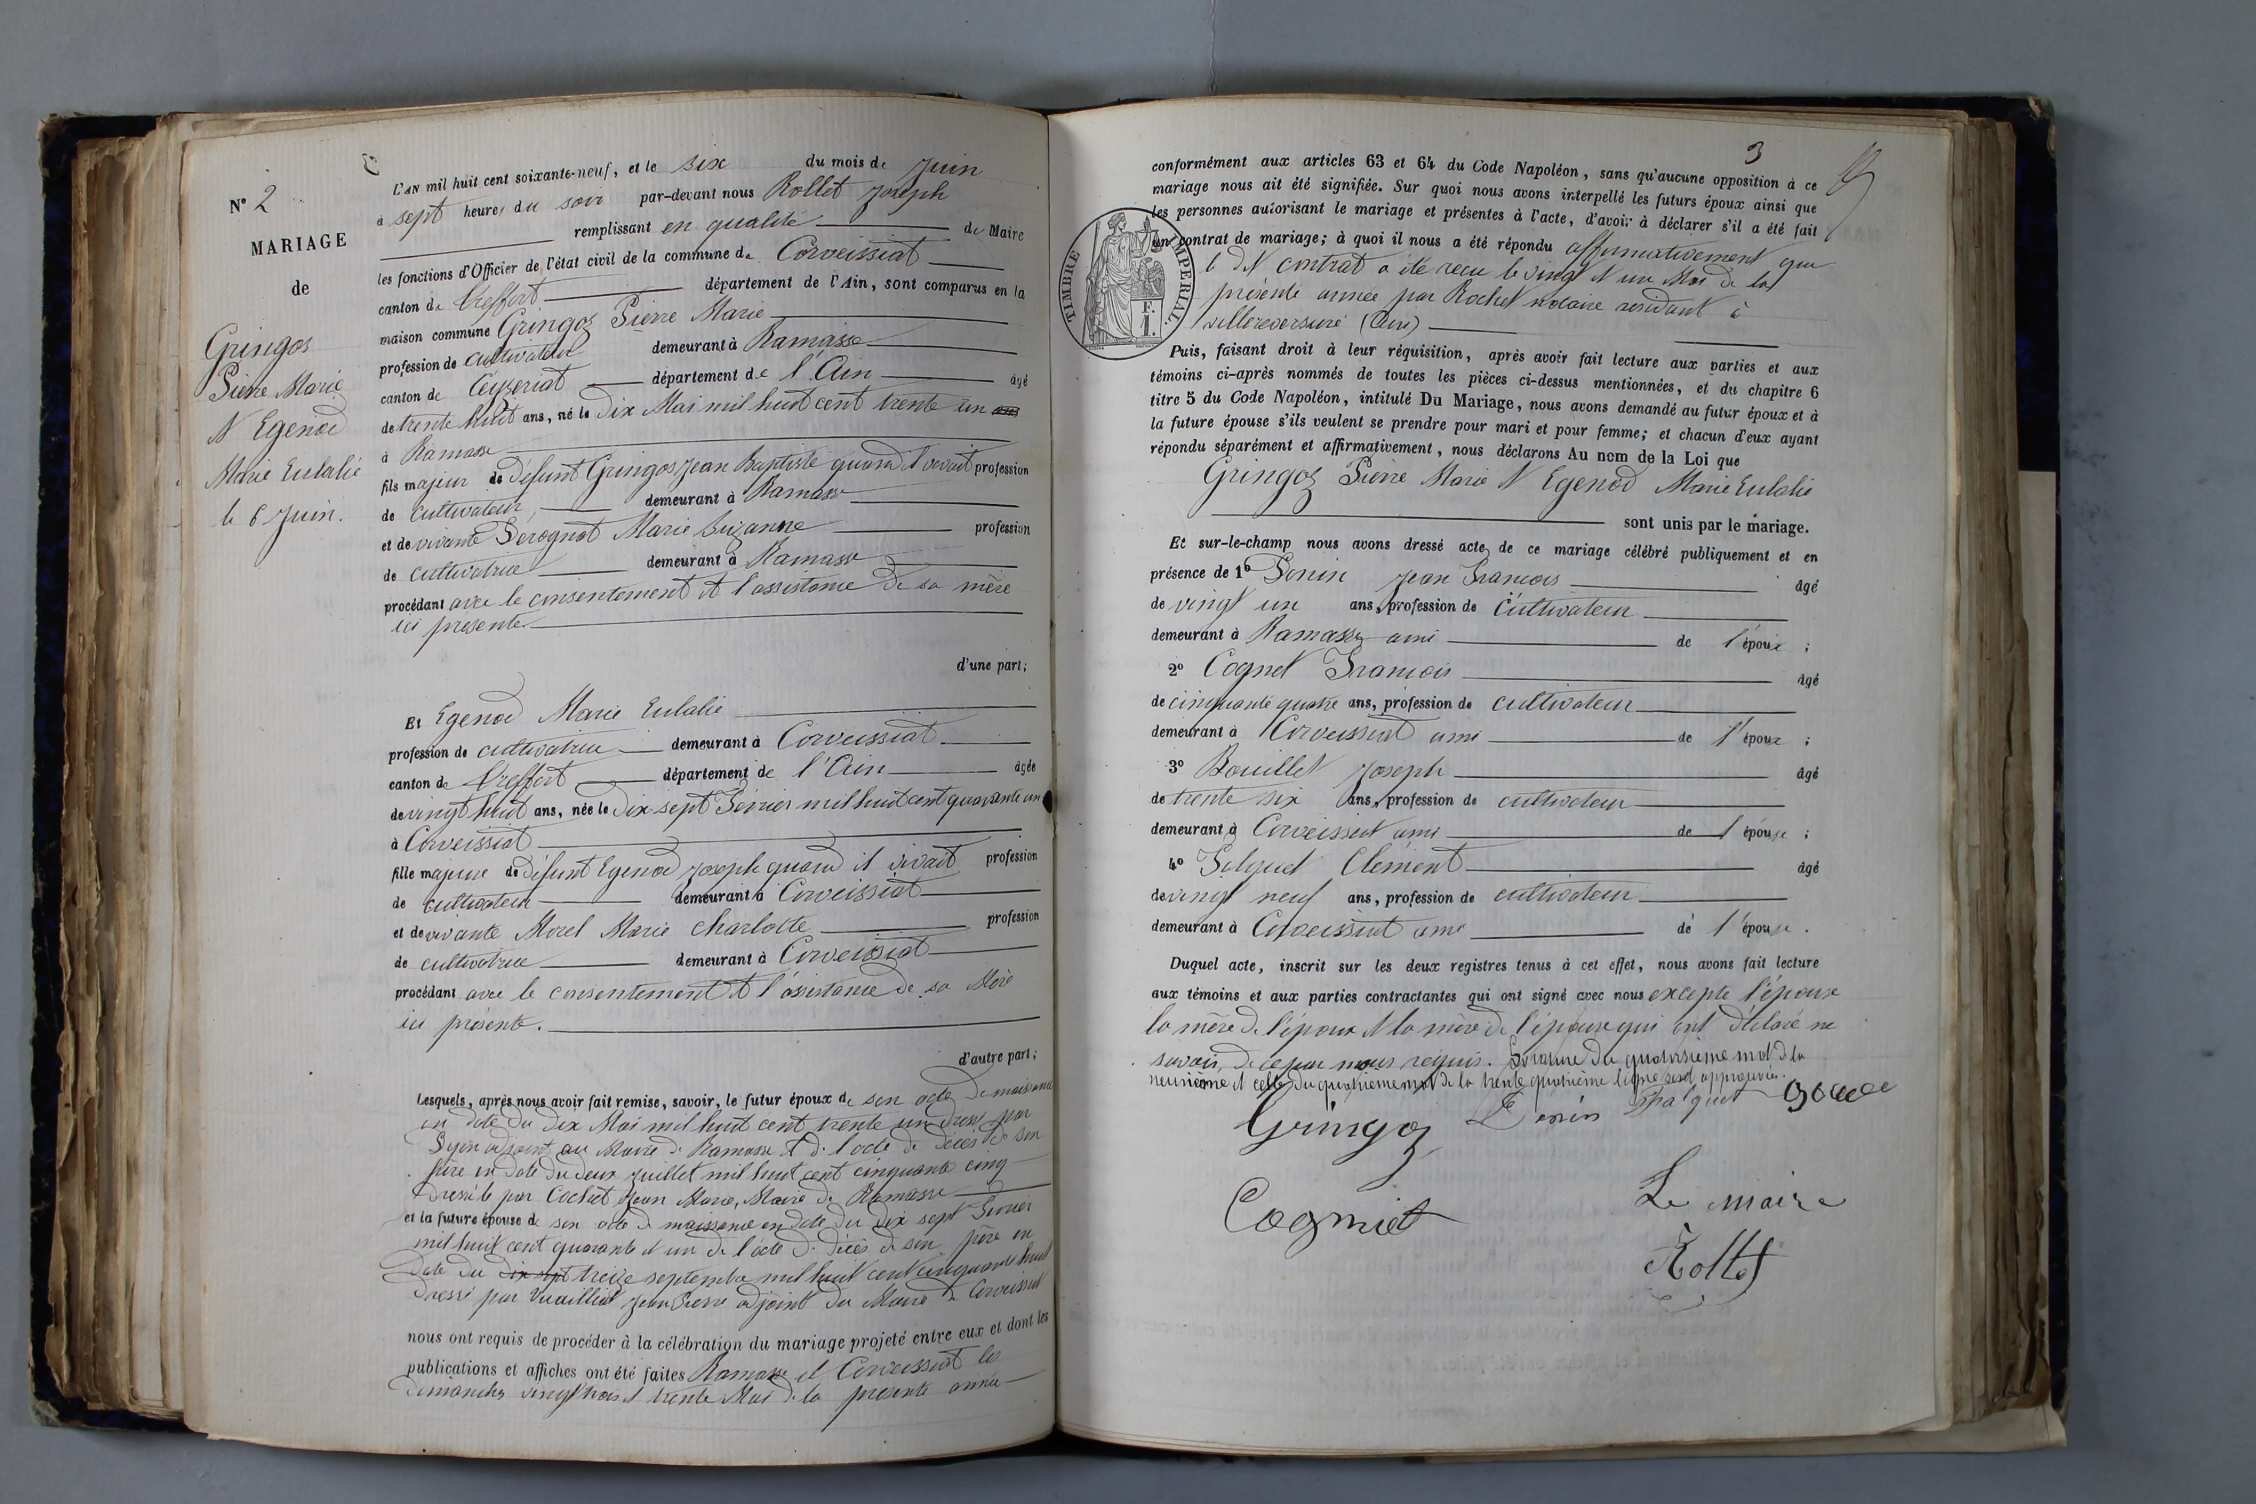 N° 2
MARIAGE
de
Gringoz
Pierre Marie
et Egenod
Marie Eulalie
le 6 Juin.
L'AN mil huit cent soixante-neuf, et le six du mois de Juin
à sept heures du soir par-devant nous Rollet Joseph
remplissant en qualité de Maire
les fonctions d'Officier de l'état civil de la commune de Corveissiat
canton de Treffort département de l'Ain, sont comparus en la
maison commune Gringoz Pierre Marie
profession de cultivateur demeurant à Ramasse
canton de Ceyzeriat département de l'Ain âgé
de trente huit ans, né le dix Mai mil huit cent trente un
à Ramasse
fils majeur de défunt Gringoz Jean Baptiste quand il vivait profession
de cultivateur, demeurant à Ramasse
et de vivante Marie Suzanne profession
de cultivatrice demeurant à Ramasse
procédant avec le consentement et l'assistance de sa mère
ici présente.
d'une part;
Et Egenod Marie Eulalie
profession de cultivatrice demeurant à Corveissiat
canton de Treffort département de l'Ain âgée
de vingt huit ans, née le dix sept Février mil huit cent quarante un
à Corveissiat
fille majeure de défunt Egenod Joseph quand il vivait profession
de cultivateur demeurant à Corveissiat
et de vivante Morel Marie Charlotte profession
de cultivatrice demeurant à Corveissiat
procédant avec le consentement et l'assistance de sa Mère
ici présente.
d'autre part;
Lesquels, après nous avoir fait remise, savoir, le futur époux de son acte de naissance
en date du dix Mai mil huit cent trente un dressé par
adjoint au Maire de Ramasse et de l'acte de décès de son
père en date du deux Juillet mil huit cent cinquante cinq
dressé par Cochet Jean Marie, Maire de Ramasse
et la future épouse de son acte de naissance en date du dix sept Février
mil huit cent quarante et un de l'acte de décès de son père en
date du dix sept treize septembre mil huit cent cinquante huit
dressé par Vuaillat Jean Pierre adjoint du Maire de Corveissiat
nous ont requis de procéder à la célébration du mariage projeté entre eux et dont les
publications et affiches ont été faites Ramasse et Corveissiat les
dimanches vingt trois et trente Mai de la présente année
3
conformément aux articles 63 et 64 du Code Napoléon, sans qu'aucune opposition à ce
mariage nous ait été signifiée. Sur quoi nous avons interpellé les futurs époux ainsi que
les personnes autorisant le mariage et présentes à l'acte, d'avoir à déclarer s'il a été fait
un contrat de mariage; à quoi il nous a été répondu affirmativement que
le dit contrat a été reçu le vingt et un Mai de la
présente année par Rochet notaire résidant à
villereversure (Ain)
TIMBRE IMPERIAL.
F.
1.
Puis, faisant droit à leur réquisition, après avoir fait lecture aux parties et aux
témoins ci-après nommés de toutes les pièces ci-dessus mentionnées, et du chapitre 6
titre 5 du Code Napoléon, intitulé Du Mariage, nous avons demandé au futur époux et à
la future épouse s'ils veulent se prendre pour mari et pour femme; et chacun d'eux ayant
répondu séparément et affirmativement, nous déclarons Au nom de la Loi que
Gringoz Pierre Marie et Egenod Marie Eulalie
sont unis par le mariage.
Et sur-le-champ nous avons dressé acte de ce mariage célébré publiquement et en
présence de 1° Jean François âgé
de vingt un ans, profession de cultivateur
demeurant à Ramasse ami de l'époux ;
2° Cognet François âgé
de cinquante quatre ans, profession de cultivateur
demeurant à Corveissiat ami de l'époux ;
3° Bouillet Joseph âgé
de trente six ans, profession de cultivateur
demeurant à Corveissiat ami de l'épouse ;
4° Clément âgé
de vingt neuf ans, profession de cultivateur
demeurant à Corveissiat ami de l'épouse.
Duquel acte, inscrit sur les deux registres tenus à cet effet, nous avons fait lecture
aux témoins et aux parties contractantes qui ont signé avec nous excepté l'épouse
la mère de l'époux et la mère de l'épouse qui ont déclaré ne
savoir, de ce par nous requis. du quatorzième mot de la
neuvième et celle du quatrième mot de la trente quatrième ligne sont approuvées.
Gringoz
Cogniet
Le maire
Rollet